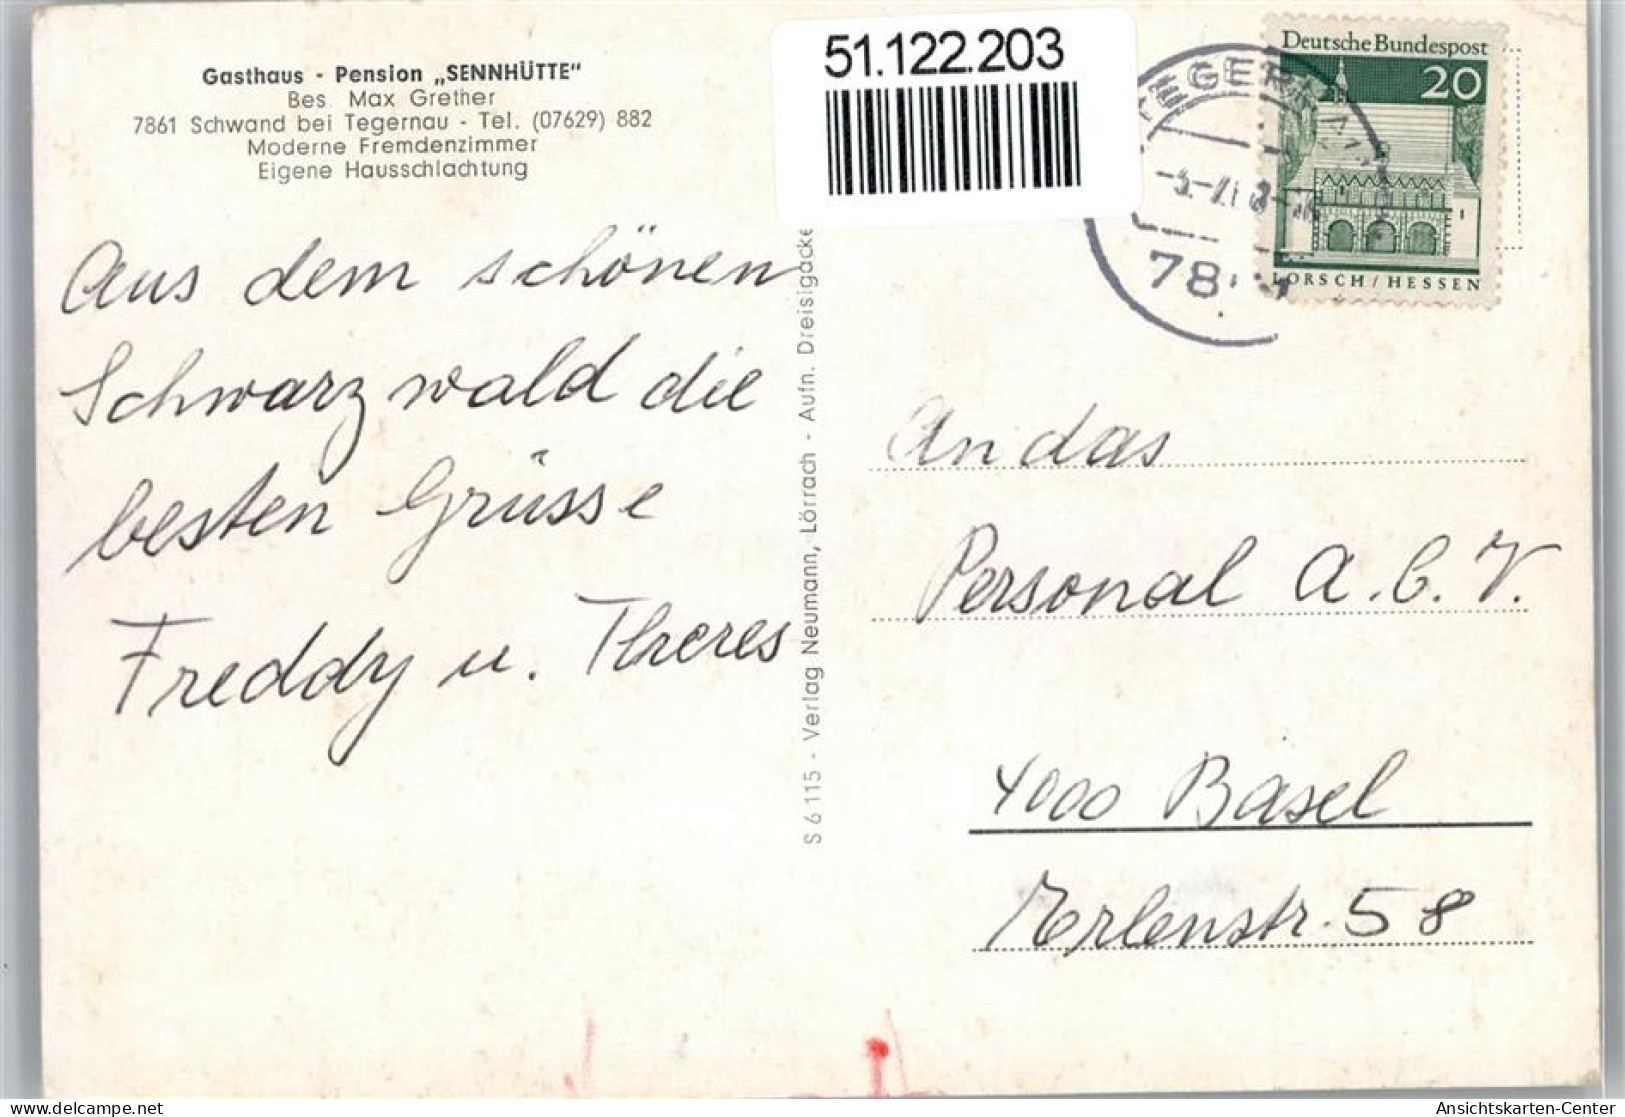 Gasthaus - Pension „SENNHÜTTE"
Bes. Max Grether
7861 Schwand bei Tegernau - Tel. (07629) 882
Moderne Fremdenzimmer
Eigene Hausschlachtung
51.122.203
Deutsche Bundespost
20
LORSCH / HESSEN
TEGERNAU
78
Aus dem schönen
Schwarzwald die
besten Grüsse
Freddy u. Theres
S 6115 - Verlag Neumann, Lörrach - Aufn. Dreisigacke
An das
Personal A.C.V.
4000 Basel
Erlenstr. 58
Ansichtskarten-Center
delcampe.net